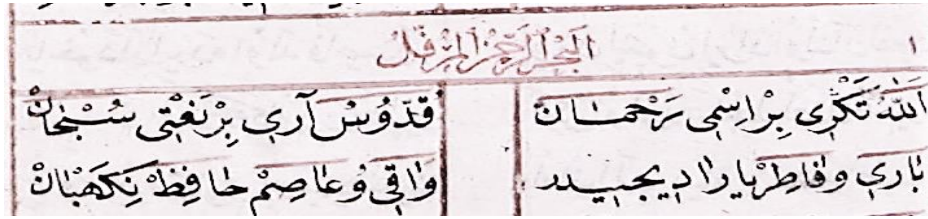 ١
البحر الرجز المرفل
اَللّٰهُ تَكْرِي بِرْ اِسْمِي رَحْمٰانْ قُدُّوسْ آرِي بِرْ نَعْتِي سُبْحَانْ
بَارِي وَفَاطِرْ يارادیجیدر وَاقِي وُعَاصِمْ حَافِظْ نِكَهْبَانْ